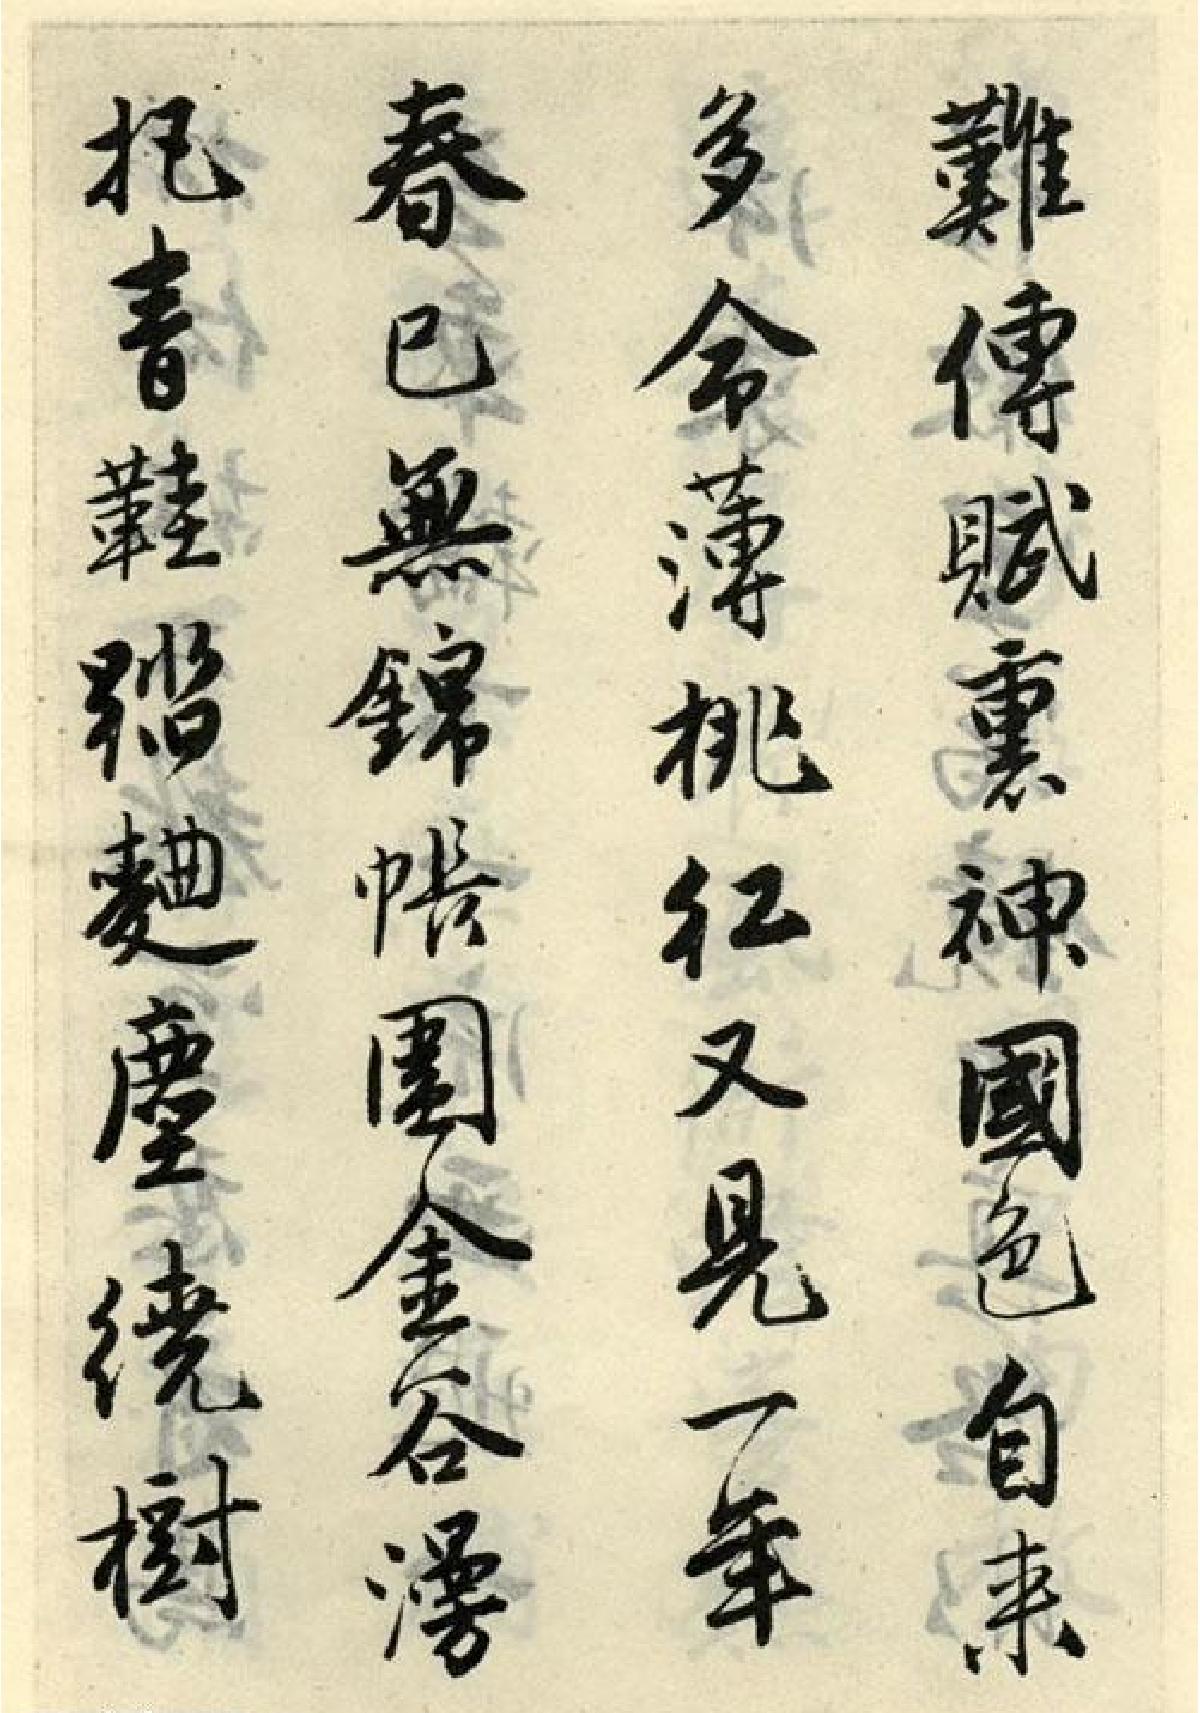 難傳賦裏神國色自来
多命薄桃紅又見一年
春已無錦帳圍金谷漫
把青鞋蹈麯塵繞樹